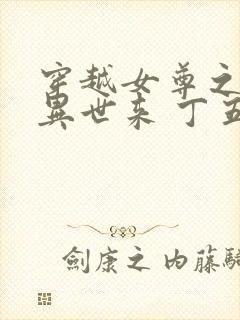 穿越女尊之
異世来 丁五
劍康之 内藤騎